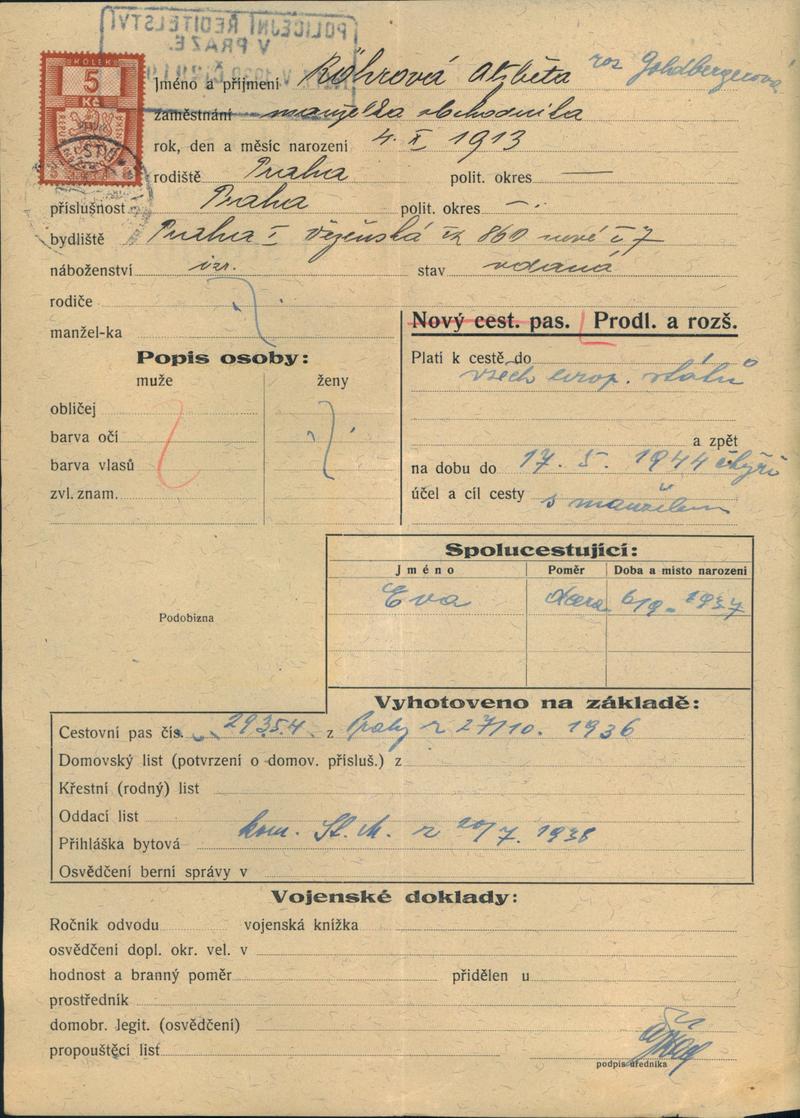 POLICEJNÍ ŘEDITELSTVÍ
V PRAZE.
KOLEK
5
Kč
Jméno a příjmení Röhrová Alžběta roz Goldbergerová
zaměstnání manželka obchodníka
rok, den a měsíc narození 4. X 1913
rodiště Praha polit. okres —
příslušnost Praha polit. okres —.
bydliště Praha I Vězeňská čp 860 nové č 7
náboženství izr. stav vdaná
rodiče
manžel-ka
Nový cest. pas. Prodl. a rozš.
Popis osoby:
muže ženy
obličej
barva očí
barva vlasů
zvl. znam.
Platí k cestě do
všech evrop. států
a zpět
na dobu do 17. 5. 1944 čtyři
účel a cíl cesty s manželem
Spolucestující:
Jméno Poměr Doba a místo narození
Eva dcera 6/9. 1937
Podobizna
Vyhotoveno na základě:
Cestovní pas čís. 29354 z Prahy z 27/10. 1936
Domovský list (potvrzení o domov. přísluš.) z
Křestní (rodný) list
Oddací list
Přihláška bytová kom. St. M. z 20/7. 1938
Osvědčení berní správy v
Vojenské doklady:
Ročník odvodu vojenská knížka
osvědčení dopl. okr. vel. v
hodnost a branný poměr přidělen u
prostředník
domobr. legit. (osvědčení)
propouštěcí list
podpis úředníka